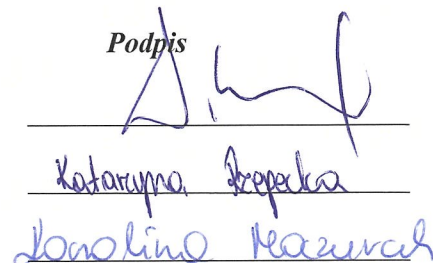 Podpis
Katarzyna Rzepecka
Karolina Mazurek